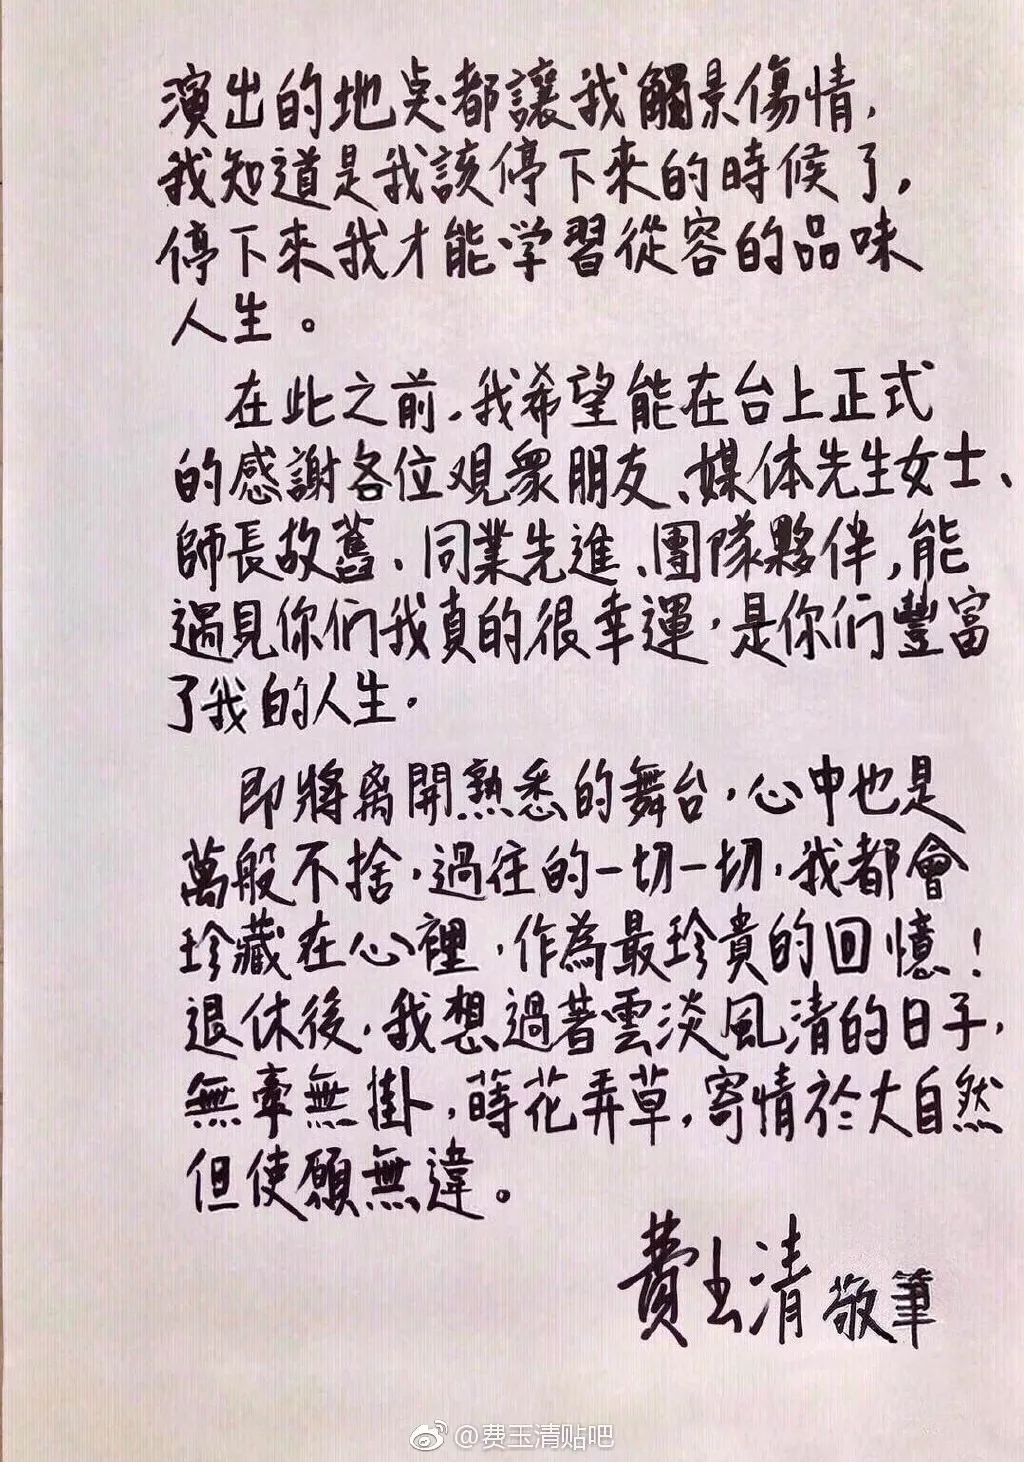 演出的地点都讓我觸景傷情，
我知道是我該停下來的時候了，
停下來我才能学習從容的品味
人生。
在此之前，我希望能在台上正式
的感謝各位观衆朋友、媒体先生女士、
師長故舊、同業先進、團隊夥伴，能
遇見你们我真的很幸運，是你们豐富
了我的人生。
即將离開熟悉的舞台，心中也是
萬般不捨，過往的一切一切，我都會
珍藏在心裡，作為最珍貴的回憶！
退休後，我想過著雲淡風清的日子，
無牽無掛，蒔花弄草，寄情於大自然
但使願無違。
費玉清 敬筆
@费玉清贴吧